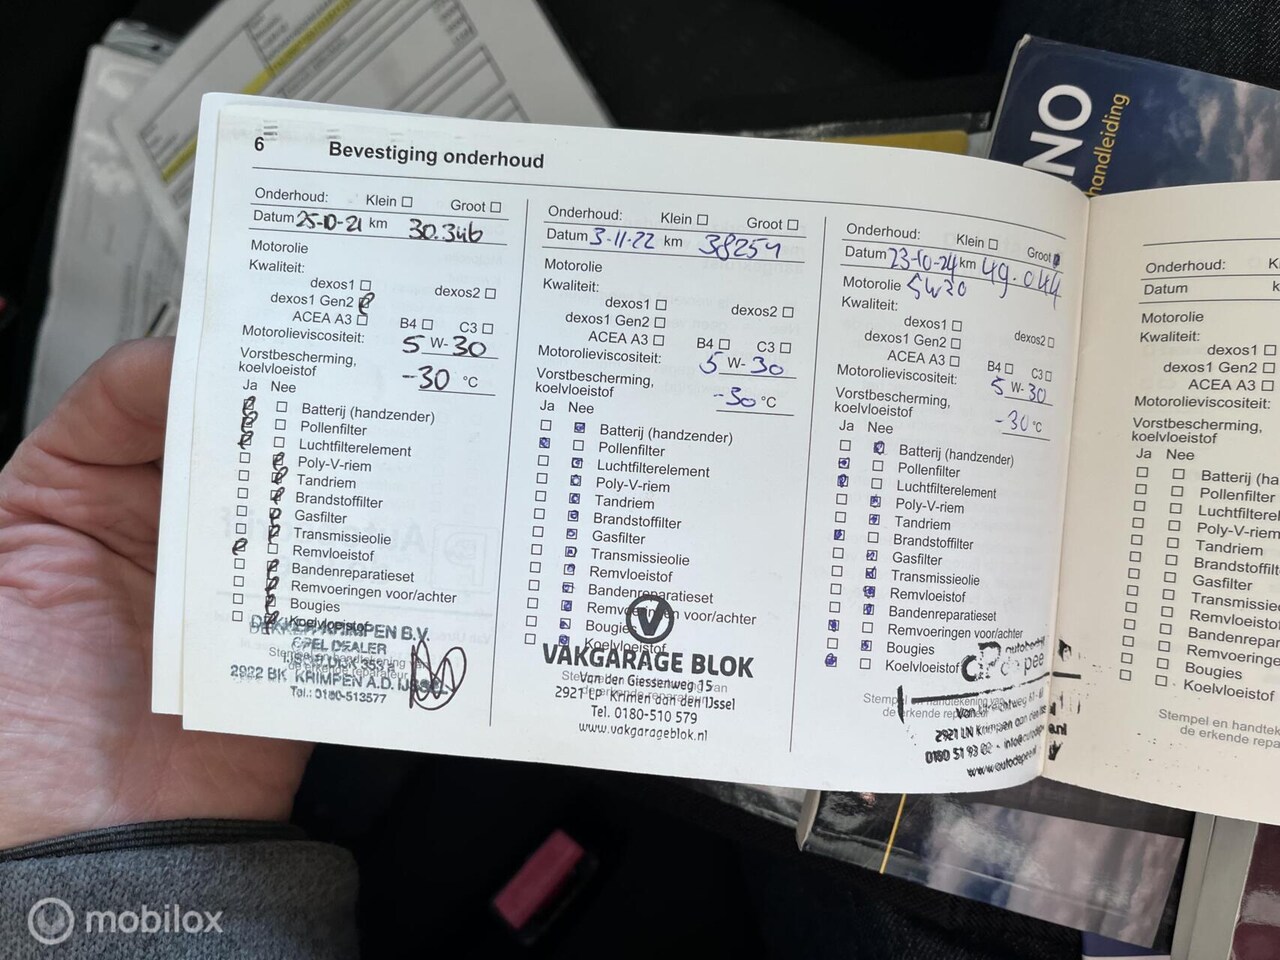 6 Bevestiging onderhoud
Onderhoud: Klein Groot
Datum 25-10-21 km 30.346
Motorolie
Kwaliteit:
dexos1 dexos2
dexos1 Gen2
ACEA A3 B4 C3
Motorolieviscositeit: 5 W- 30
Vorstbescherming,
koelvloeistof -30 °C
Ja Nee
Batterij (handzender)
Pollenfilter
Luchtfilterelement
Poly-V-riem
Tandriem
Brandstoffilter
Gasfilter
Transmissieolie
Remvloeistof
Bandenreparatieset
Remvoeringen voor/achter
Bougies
Koelvloeistof
DEKKER KRIMPEN B.V.
OPEL DEALER
IJSSELDIJK 353 a
2922 BK KRIMPEN A.D. IJSSEL
Tel.: 0180-513577
Onderhoud: Klein Groot
Datum 3-11-22 km 38254
Motorolie
Kwaliteit:
dexos1 dexos2
dexos1 Gen2
ACEA A3 B4 C3
Motorolieviscositeit: 5 W- 30
Vorstbescherming,
koelvloeistof -30 °C
Ja Nee
Batterij (handzender)
Pollenfilter
Luchtfilterelement
Poly-V-riem
Tandriem
Brandstoffilter
Gasfilter
Transmissieolie
Remvloeistof
Bandenreparatieset
Remvoeringen voor/achter
Bougies
Koelvloeistof
VAKGARAGE BLOK
Van der Giessenweg 15
2921 LP Krimpen aan den IJssel
Tel. 0180-510 579
www.vakgarageblok.nl
Onderhoud: Klein Groot
Datum 23-10-24 km 49.044
Motorolie 5W30
Kwaliteit:
dexos1 dexos2
dexos1 Gen2
ACEA A3 B4 C3
Motorolieviscositeit: 5 W- 30
Vorstbescherming,
koelvloeistof -30 °C
Ja Nee
Batterij (handzender)
Pollenfilter
Luchtfilterelement
Poly-V-riem
Tandriem
Brandstoffilter
Gasfilter
Transmissieolie
Remvloeistof
Bandenreparatieset
Remvoeringen voor/achter
Bougies
Koelvloeistof
Stempel en handtekening van
de erkende reparateur
autobedrijf
depee
2921 LN Krimpen aan den
0180 51 93 02 - info@autodepee.nl
www.autodepee.nl
Onderhoud:
Datum
Motorolie
Kwaliteit:
dexos1
dexos1 Gen2
ACEA A3
Motorolieviscositeit:
Vorstbescherming,
koelvloeistof
Ja Nee
Batterij
Pollenfilter
Poly-V-riem
Tandriem
Gasfilter
Bougies
Koelvloeistof
Stempel en
de erkende
handleiding
mobilox